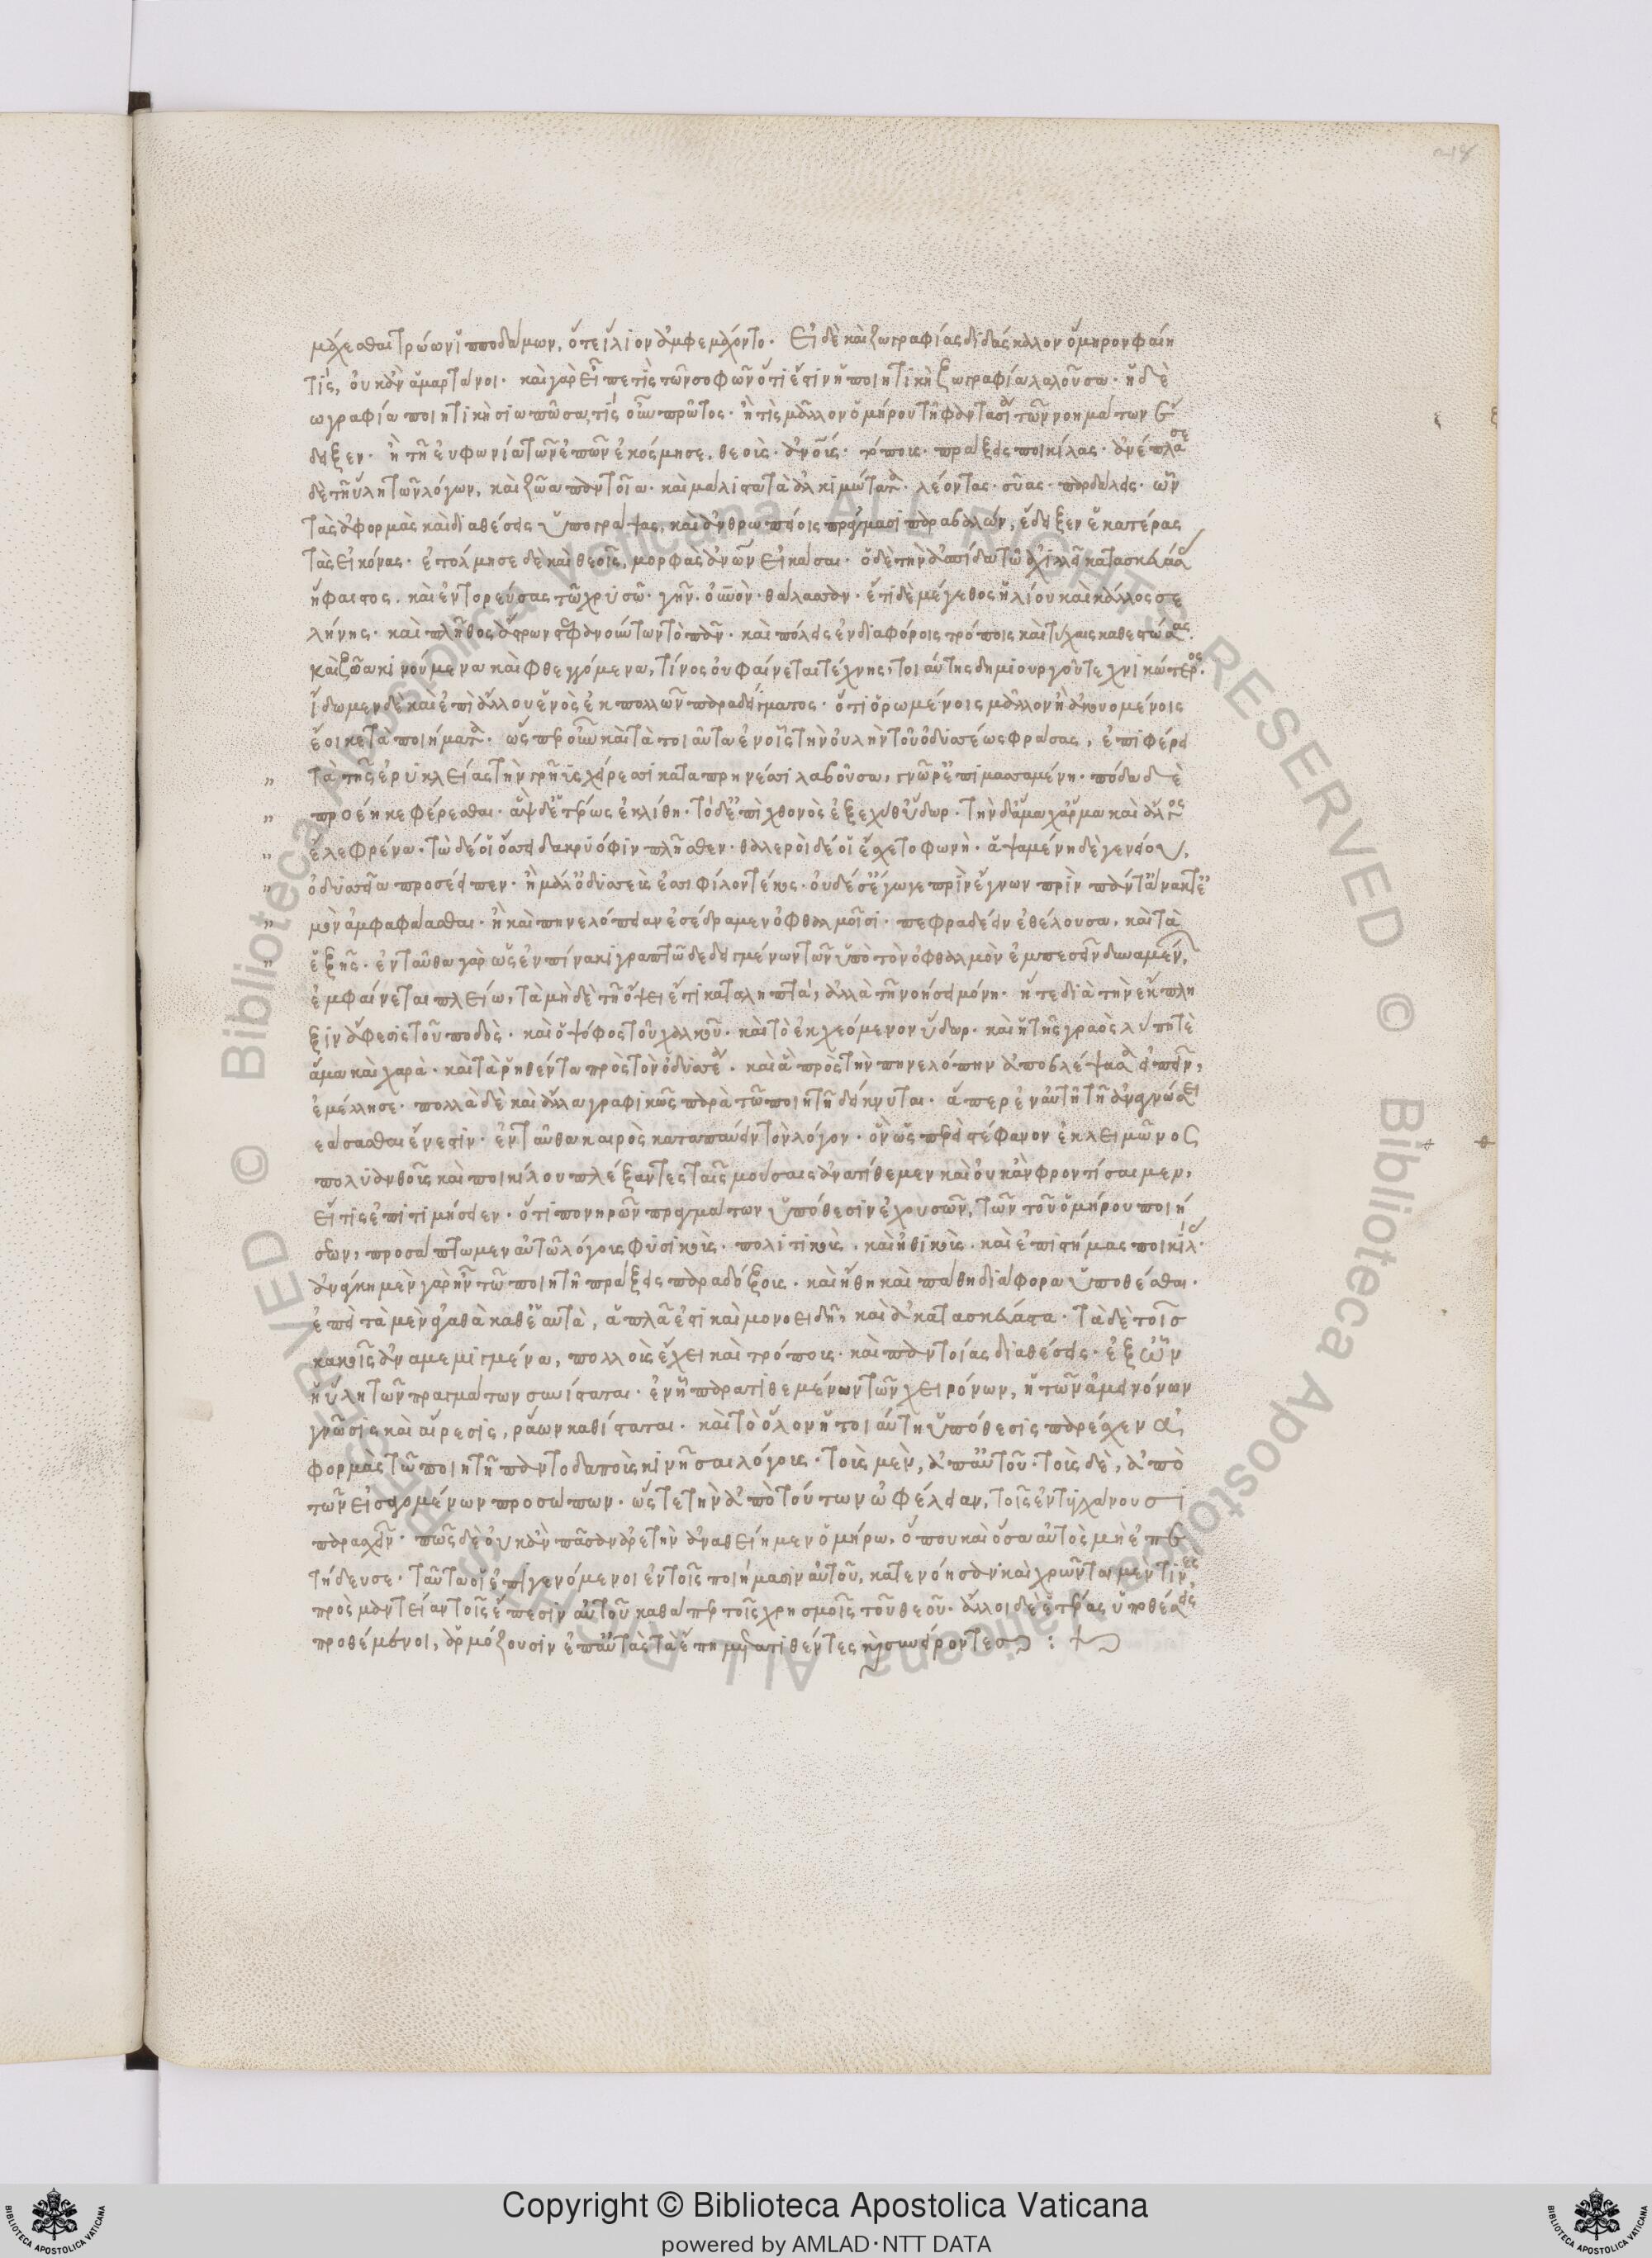 μάχεσθαι τρώων ἱπποδάμων, ὅτε ἴλιον ἀμφεμάχοντο. Εἰ δὲ καὶ ζωγραφίας διδάσκαλον ὅμηρον φαίη
τίς, οὐκ ἂν ἁμαρτάνοι. καὶ γὰρ εἶπε τὶς τῶν σοφῶν ὅτι ἐστὶν ἡ ποιητικὴ ζωγραφία λαλοῦσα. ἡ δὲ
ωγραφία ποιητικὴ σιωπῶσα, τίς οὖν πρῶτος. ἢ τὶς μᾶλλον ὁμήρου τῇ φαντασίᾳ τῶν νοημάτων ἔ
δειξεν. ἢ τῇ εὐφωνία τῶν ἐπῶν ἐκόσμησε. θεοὺς. ἀνους. τόπους. πράξεις ποικίλας. ἀνέπλασε
δὲ τῇ ὕλῃ τῶν λόγων, καὶ ζῶα παντοῖα. καὶ μάλιστα τὰ ἀλκιμώτατα. λέοντας. σύας. παρδάλεις. ὧν
τὰς ἀφορμὰς καὶ διαθέσεις ὑπογράψας, καὶ ἀνθρωπείοις πράγμασι παραβαλὼν, ἔδειξεν ἑκατέρας
τὰς εἰκόνας. ἐτόλμησε δὲ καὶ θεοῖς, μορφὰς ἀνων εἰκάσαι. ὁ δὲ τὴν ἀσπίδα τῷ ἀχιλλεῖ κατασκευάσας
ἥφαιστος. καὶ ἐντορεύσας τῷ χρυσῷ. γῆν. οὐνον. θάλασσαν. ἔτι δὲ μέγεθος ἡλίου καὶ κάλλος σε
λήνης. καὶ πλῆθος ἄστρων στεφανούντων τὸ πᾶν. καὶ πόλεις ἐν διαφόροις τρόποις καὶ τύχαις καθεστώσας.
καὶ ζῶα κινούμενα καὶ φθεγγόμενα, τίνος οὐ φαίνεται τέχνης, τοιαύτης δημιουργοῦ τεχνικώτερος.
ἴδωμεν δὲ καὶ ἐπὶ ἄλλου ἑνὸς ἐκ πολλῶν παραδείγματος. ὅτι ὁρωμένοις μᾶλλον ἢ ἀκουομένοις
ἔοικε τὰ ποιήματα. ὥσπερ οὖν καὶ τὰ τοιαῦτα ἐν οἷς τὴν οὐλὴν τοῦ ὀδυσσέως φράσας, ἐπιφέρει
„ τὰ τῆς ἐρυκλείας τὴν γρηῒς χείρεσσι καταπρηνέσσι λαβοῦσα, γνῶ ῥ' ἐπιμασσαμένη. πόδα δὲ
„ προέηκε φέρεσθαι. ἂψ δ' ἑτέρως ἐκλίθη. τὸ δ' ἐπὶ χθονὸς ἐξέχυθ' ὕδωρ. τὴν δ' ἅμα χάρμα καὶ ἄλγος
„ ἕλε φρένα. τὼ δέ οἱ ὄσσε δακρυόφιν πλῆσθεν. θαλερὸι δέ οἱ ἔσχετο φωνὴ. ἁψαμένη δὲ γενείου,
„ ὀδυσσῆα προσέειπεν. ἦ μάλ' ὀδυσσεὺς ἐσσὶ φίλον τέκος. οὐδέ σ' ἔγωγε πρὶν ἔγνων πρὶν πάντ' ἄνακτ' ἐ
„ μὸν ἀμφαφάασθαι. ἢ καὶ πηνελόπειαν ἐσέδραμεν ὀφθαλμοῖσι. πεφραδέειν ἐθέλουσα. καὶ τὰ
„ ἑξῆς. ἐνταῦθα γὰρ ὡς ἐν πίνακι γραπτῷ δεδειγμένων τῶν ὑπὸ τὸν ὀφθαλμὸν ἐμπεσεῖν δυναμένων,
ἐμφαίνεται πλείω, τὰ μηδὲ τῇ ὄψει ἔτι καταληπτά, ἀλλὰ τῇ νοήσει μόνῃ. ἥ τε διὰ τὴν ἔκπλη
ξιν ἄφεσις τοῦ ποδὸς. καὶ ὁ ψόφος τοῦ χαλκοῦ. καὶ τὸ ἐκχεόμενον ὕδωρ. καὶ ἡ τῆς γραὸς λύπη τὲ
ἅμα καὶ χαρὰ. καὶ τὰ ῥηθέντα πρὸς τὸν ὀδυσσέα. καὶ ἃ πρὸς τὴν πηνελόπην ἀποβλέψασα εἰπεῖν,
ἐμέλλησε. πολλὰ δὲ καὶ ἄλλα γραφικῶς παρὰ τῷ ποιητῇ δείκνυται. ἅπερ ἐν αὐτῇ τῇ ἀναγνώσει
εάσασθαι ἔνεστιν. ἐνταῦθα καιρὸς καταπαύειν τὸν λόγον. ὃν ὥσπερ στέφανον ἐκ λειμῶνος
πολυανθοῦς καὶ ποικίλου πλέξαντες ταῖς μούσαις ἀνατίθεμεν καὶ οὐκ ἂν φροντίσαιμεν,
εἴ τις ἐπιτιμήσειεν. ὅτι πονηρῶν πραγμάτων ὑπόθεσιν ἐχουσῶν, τῶν τοῦ ὁμήρου ποιή
σεων, προσάπτωμεν αὐτῷ λόγους φυσικοὺς. πολιτικοὺς. καὶ ἠθικοὺς. καὶ ἐπιστήμας ποικίλας.
ἀνάγκη μὲν γὰρ ἦν τῷ ποιητῇ πράξεις παραδόξους. καὶ ἤθη καὶ πάθη διάφορα ὑποθέσθαι.
ἐπεὶ τὰ μὲν ἀγαθὰ καθ' ἑαυτὰ, ἁπλᾶ ἐστὶ καὶ μονοειδῆ, καὶ ἀκατασκεύαστα. τὰ δὲ τοῖς
κακοῖς ἀναμεμιγμένα, πολλοὺς ἔχει καὶ τρόπους. καὶ παντοίας διαθέσεις. ἐξ ὧν
ἡ ὕλη τῶν πραγμάτων συνίσταται. ἐν ᾗ παρατιθεμένων τῶν χειρόνων, ἡ τῶν ἀμεινόνων
γνῶσις καὶ αἵρεσις, ῥάων καθίσταται. καὶ τὸ ὅλον ἡ τοιαύτη ὑπόθεσις παρέσχεν ἀ
φορμὰς τῷ ποιητῇ παντοδαποὺς κινῆσαι λόγους. τοὺς μὲν, ἀπ' αὐτοῦ. τοὺς δὲ, ἀπὸ
τῶν εἰσαγομένων προσώπων. ὥστε τὴν ἀπὸ τούτων ὠφέλειαν, τοῖς ἐντυγχάνουσι
παρασχεῖν. πῶς δὲ οὐκ ἂν πᾶσαν ἀρετὴν ἀναθείημεν ὁμήρω. ὅπου καὶ ὅσα αὐτὸς μὴ ἐπε
τήδευσε. ταῦτα οἱ ἐπιγενόμενοι ἐν τοῖς ποιήμασιν αὐτοῦ, κατενόησαν καὶ χρῶνται μέν τινες
πρὸς μαντείαν τοῖς ἔπεσιν αὐτοῦ καθάπερ τοῖς χρησμοῖς τοῦ θεοῦ. ἄλλοι δὲ ἑτέρας ὑποθέσεις
προθέμενοι, ἁρμόζουσιν ἐπ' αὐτὰς τὰ ἔπη μετατιθέντες καὶ συνείροντες :
© Biblioteca Apostolica Vaticana ALL RIGHTS RESERVED
Copyright © Biblioteca Apostolica Vaticana
powered by AMLAD·NTT DATA
BIBLIOTECA APOSTOLICA VATICANA
BIBLIOTECA APOSTOLICA VATICANA